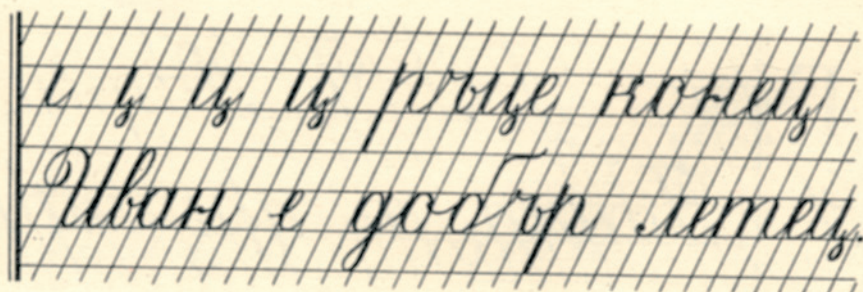 ı ц ц ц ръце конец
Иван е добър летец.